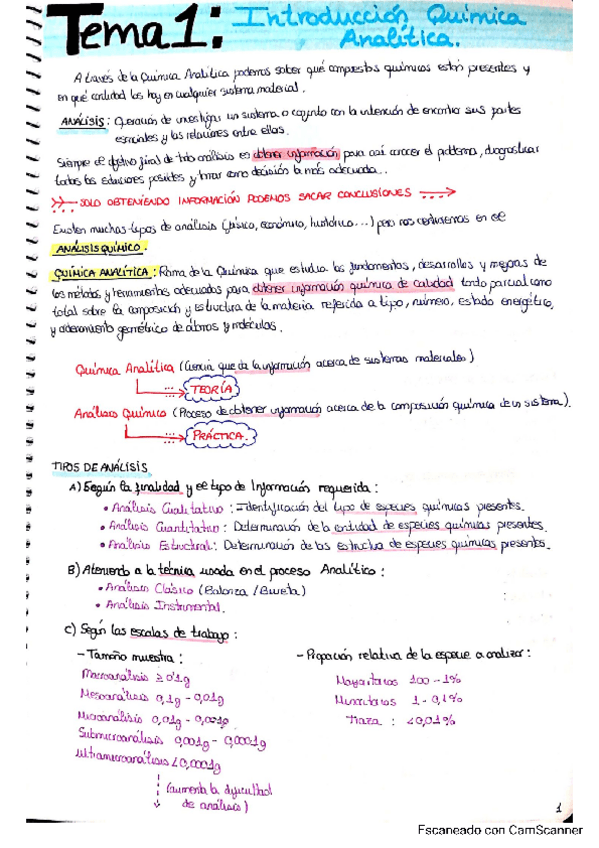 Tema 1: Introducción Química
Analítica.
A través de la Química Analítica podemos saber qué compuestos químicos están presentes y
en qué cantidad los hay en cualquier sistema material.
ANÁLISIS: Operación de investigar un sistema o conjunto con la intención de encontrar sus partes
esenciales y las relaciones entre ellas.
Siempre el objetivo final de todo análisis es obtener información para así conocer el problema, diagnosticar
todas las soluciones posibles y tomar como decisión la más adecuada...
SOLO OBTENIENDO INFORMACIÓN PODEMOS SACAR CONCLUSIONES
Existen muchos tipos de análisis (físico, económico, histórico...) pero nos centraremos en el
ANÁLISIS QUÍMICO.
QUÍMICA ANALÍTICA: Rama de la Química que estudia los fundamentos, desarrollos y mejoras de
los métodos y herramientas adecuados para obtener información química de calidad tanto parcial como
total sobre la composición y estructura de la materia referida a tipo, número, estado energético,
y ordenamiento geométrico de átomos y moléculas.
Química Analítica (Ciencia que da la información acerca de sistemas materiales)
TEORÍA
Análisis Químico (Proceso de obtener información acerca de la composición química de un sistema).
PRÁCTICA.
TIPOS DE ANÁLISIS
A) Según la finalidad y el tipo de Información requerida:
• Análisis Cualitativo: Identificación del tipo de especies químicas presentes.
• Análisis Cuantitativo: Determinación de la cantidad de especies químicas presentes.
• Análisis Estructural: Determinación de las estructura de especies químicas presentes.
B) Atendiendo a la técnica usada en el proceso Analítico:
• Análisis Clásico (Balanza / Bureta)
• Análisis Instrumental.
C) Según las escalas de trabajo:
- Tamaño muestra:
Macroanálisis ≥ 0'1g
Mesoanálisis 0,1g - 0,01g
Microanálisis 0,01g - 0,001g
Submicroanálisis 0,001g - 0,0001g
Ultramicroanálisis < 0,0001g
(aumenta la dificultad
de análisis)
- Proporción relativa de la especie a analizar:
Mayoritarios 100 - 1%
Minoritarios 1 - 0,1%
Traza : < 0,01%
1
Escaneado con CamScanner